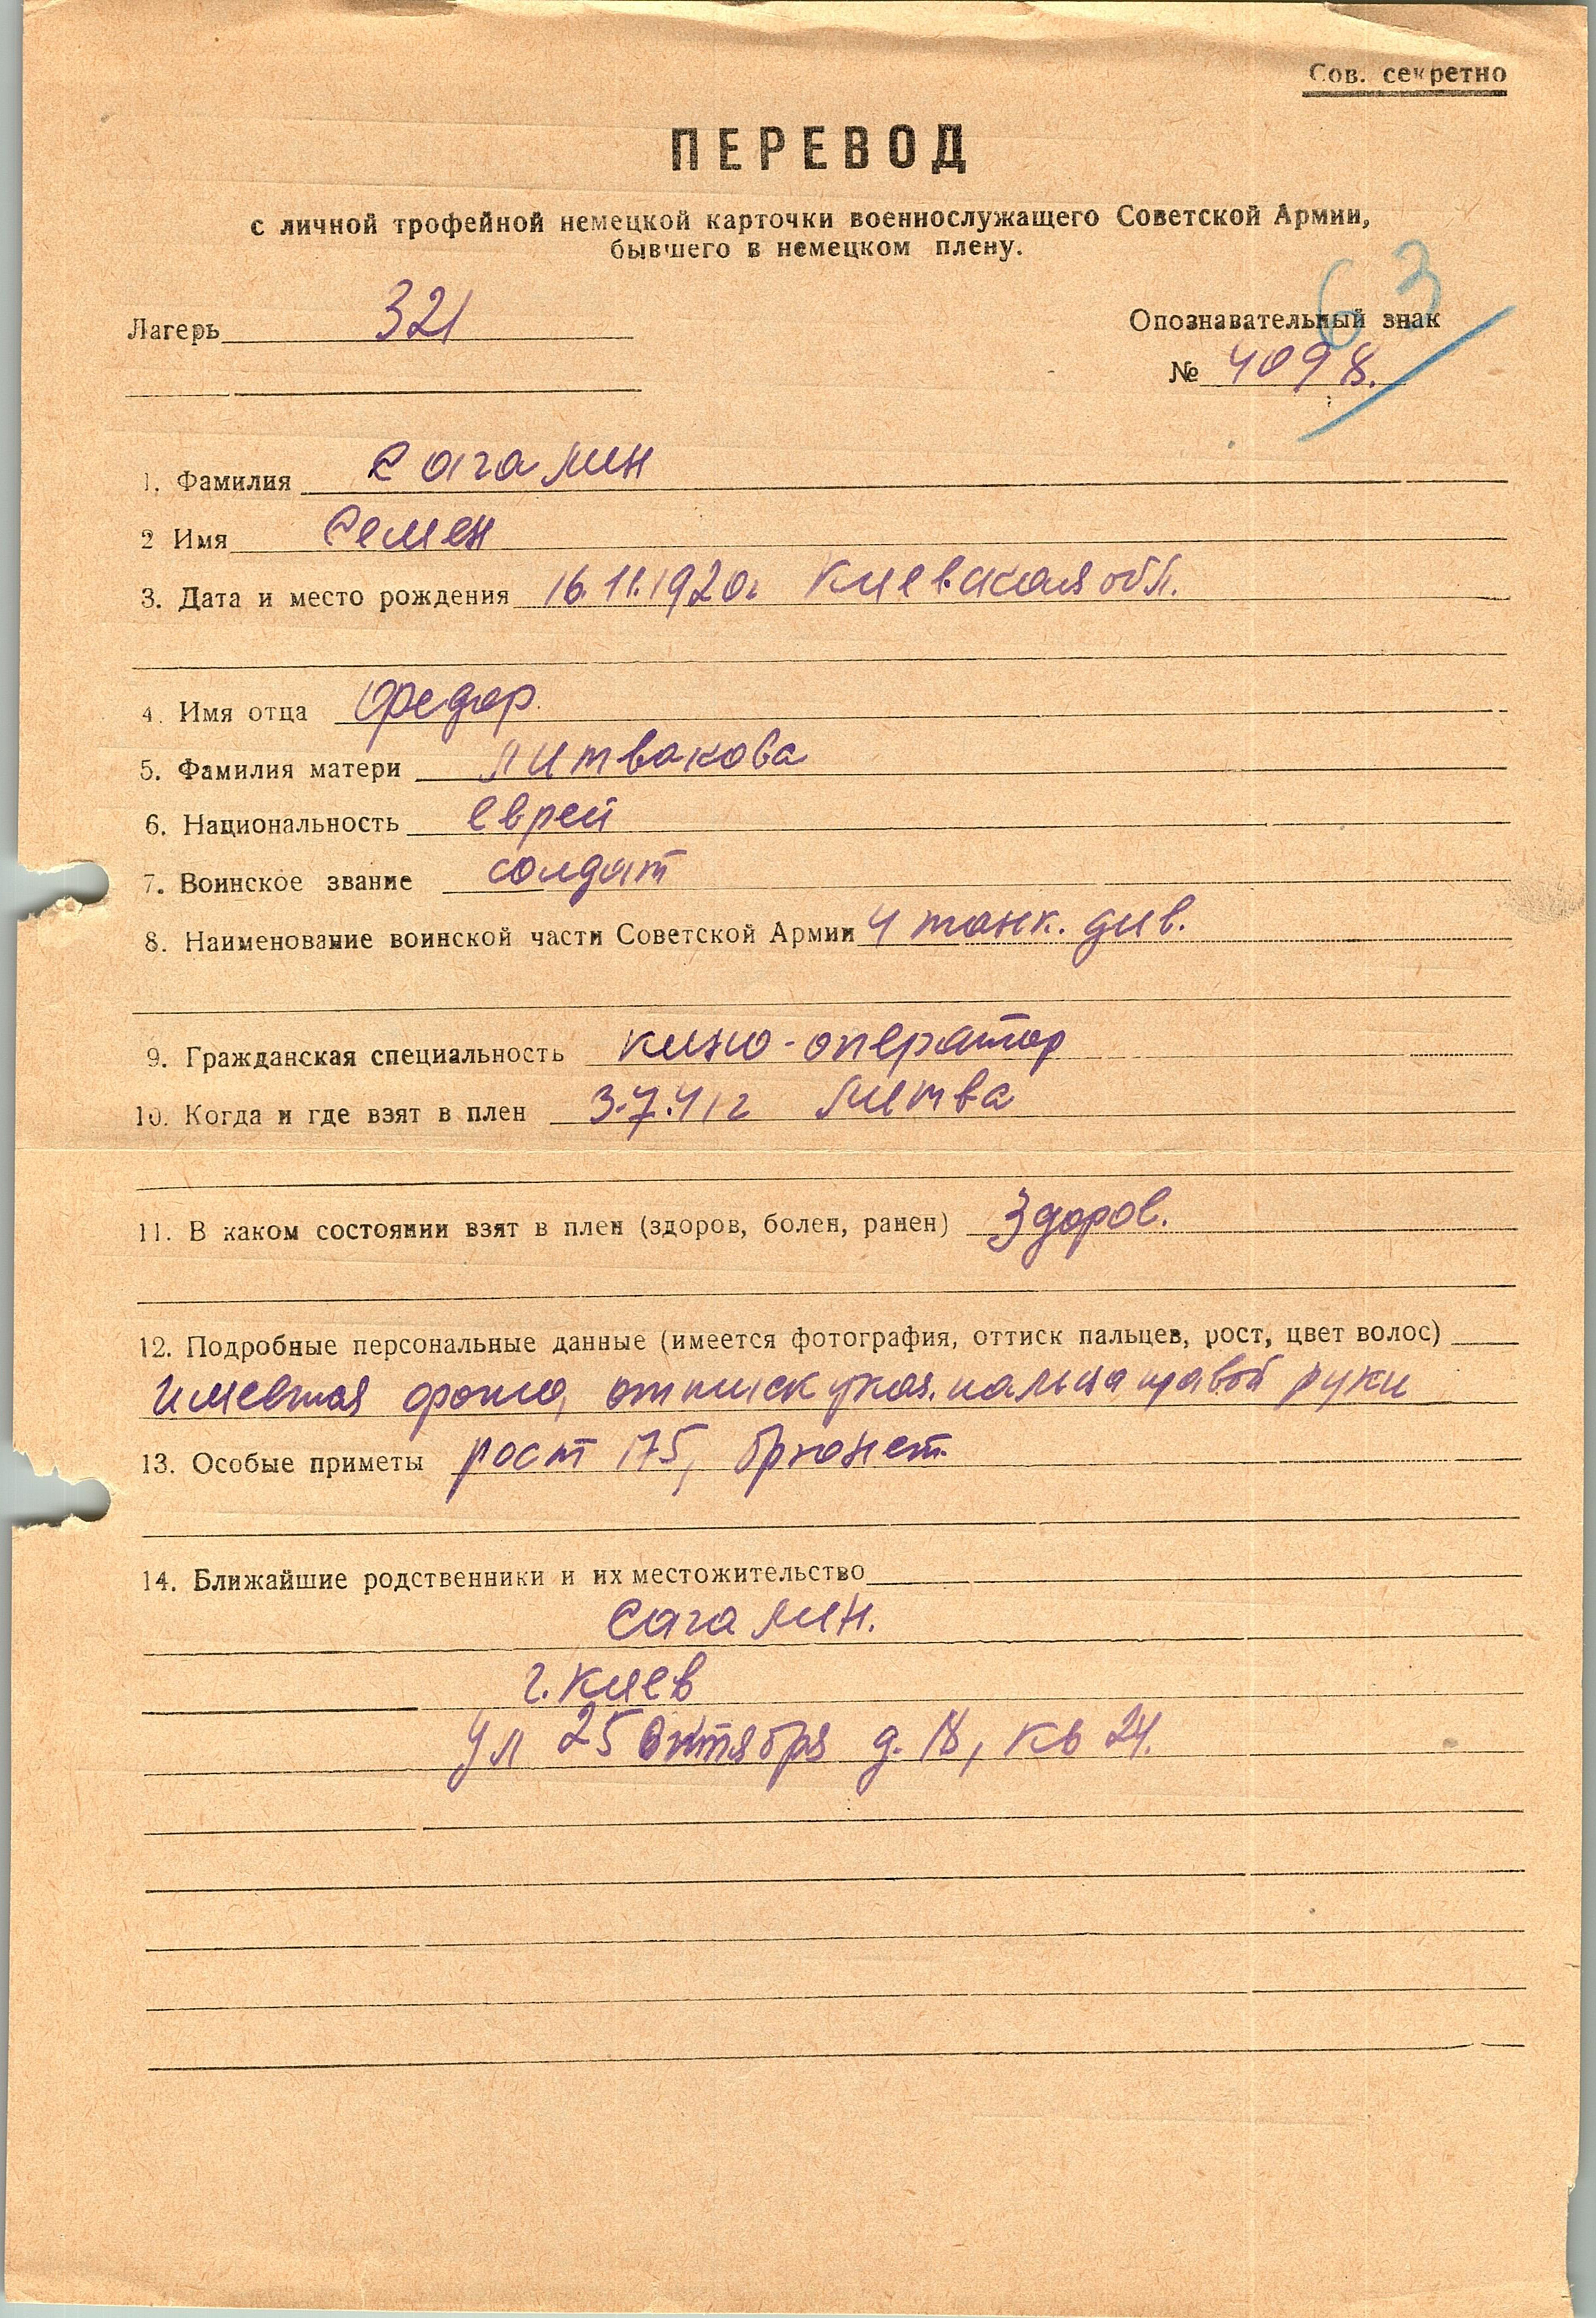 Сов. секретно
ПЕРЕВОД
с личной трофейной немецкой карточки военнослужащего Советской Армии,
бывшего в немецком плену.
63
Лагерь 321
Опознавательный знак
№ 4098.
1. Фамилия Сагалин
2 Имя Семен
3. Дата и место рождения 16.11.1920г Киевская обл.
4. Имя отца Федор.
5. Фамилия матери Литвакова
6. Национальность еврей
7. Воинское звание солдат
8. Наименование воинской части Советской Армии 4 танк. див.
9. Гражданская специальность кино-оператор
10. Когда и где взят в плен 3.7.41г Литва
11. В каком состоянии взят в плен (здоров, болен, ранен) Здоров.
12. Подробные персональные данные (имеется фотография, оттиск пальцев, рост, цвет волос)
имеется фото, оттиск указ. пальца правой руки
13. Особые приметы рост 175, брюнет.
14. Ближайшие родственники и их местожительство
Сагалин.
г. Киев
ул 25 Октября д. 18, кв 24.